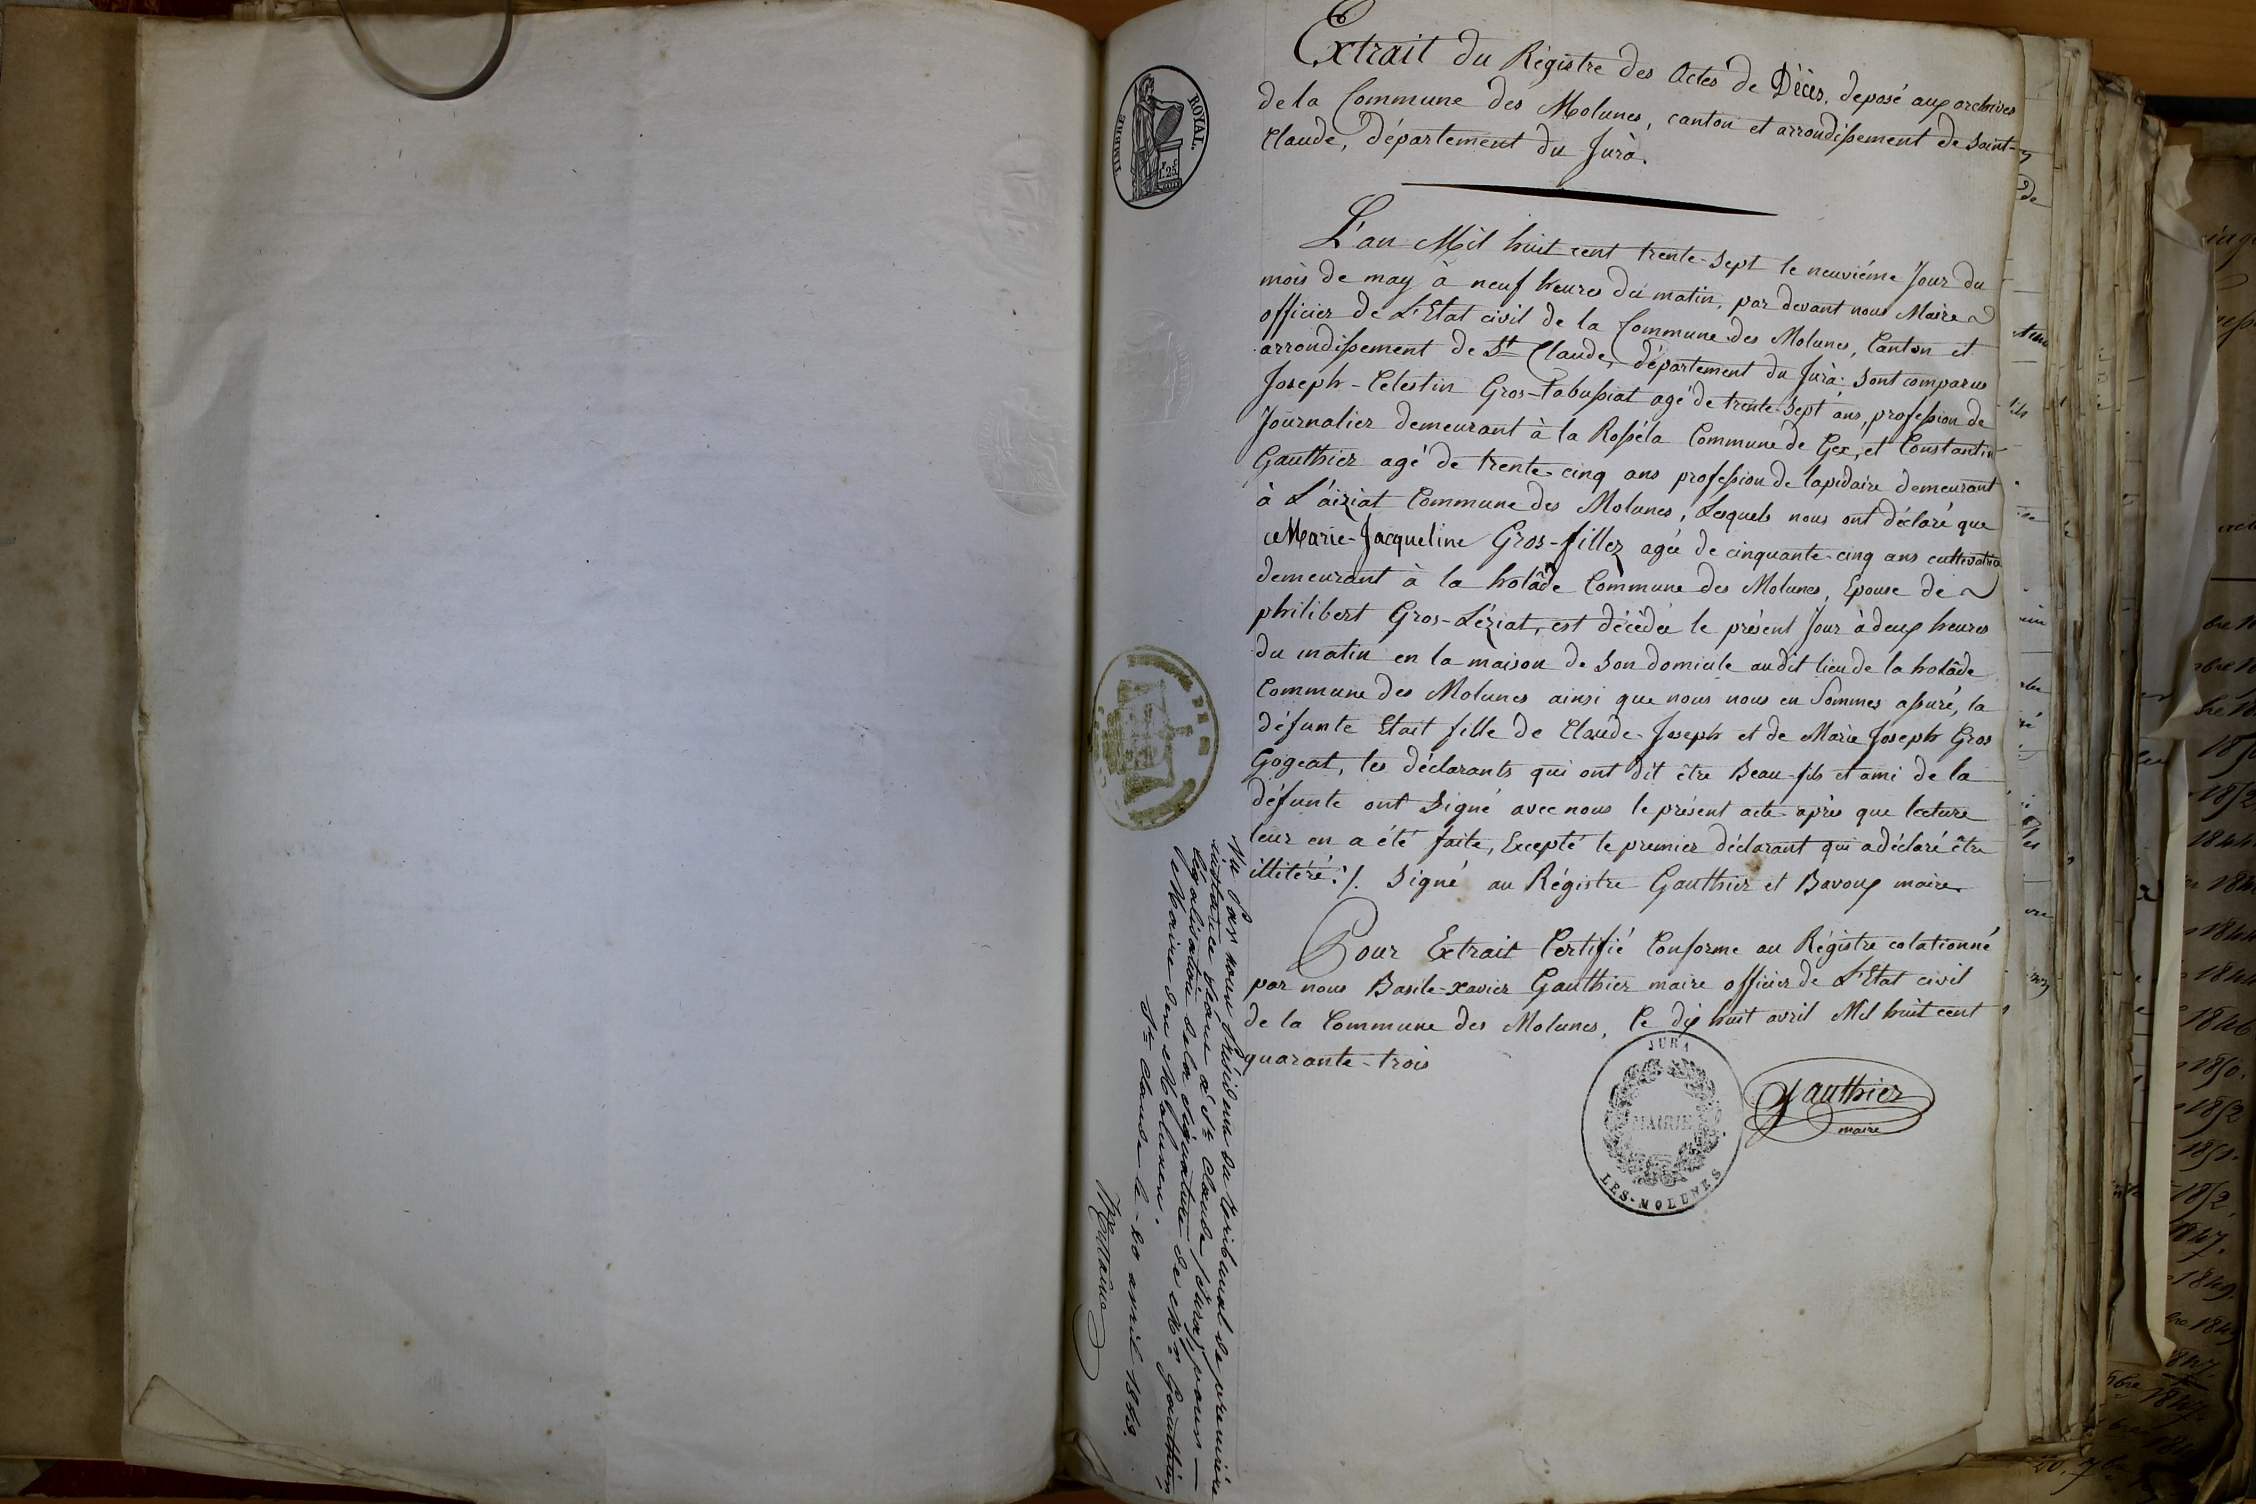 Extrait du Régistre des Actes de Décès, déposé aux archives
de la Commune des Molunes, canton et arrondissement de Saint-
Claude, département du Jura.
TIMBRE ROYAL.
L'an Mil huit cent trente-sept le neuviéme Jour du
mois de may à neuf heures du matin, par devant nous Maire
officier de L'Etat civil de la Commune des Molunes, Canton et
arrondissement de St Claude, département du Jura: Sont comparus
Joseph-Celestin Gros-Tabussiat agé de trente-sept ans, profession de
Journalier demeurant à la Rosséla Commune de Gex, et Constantin
Gauthier agé de trente-cinq ans profession de lapidaire demeurant
à L'aiziat Commune des Molunes, Lesquels nous ont déclaré que
Marie-Jacqueline Gros-fillez agée de cinquante-cinq ans cultivatrice
demeurant à la holâde Commune des Molunes, Epouse de
philibert Gros-Léziat, est décédée le présent Jour à deux heures
du matin en la maison de son domicile audit lieu de la holâde
Commune des Molunes ainsi que nous nous en sommes assuré, la
défunte Etait fille de Claude-Joseph et de Marie Joseph Gros
Gogeat, les déclarants qui ont dit être Beau-fils et ami de la
défunte ont signé avec nous le présent acte après que lecture
leur en a été faite, Excepté le premier déclarant qui a déclaré être
illitéré ./. Signé au Régistre Gauthier et Bavoux maire
Pour Extrait Certifié Conforme au Régistre colationné
par nous Basile-xavier Gauthier maire officier de L'Etat civil
de la Commune des Molunes, le dix huit avril Mil huit cent
quarante-trois
JURA
MAIRIE
LES-MOLUNES
Gauthier
maire
Vu Par nous Président du tribunal de première
instance séant à St Claude, (Jura), pour
légalisation de la signature de Mr Gauthier,
Maire des Molunes.
St Claude le 20 avril 1843.